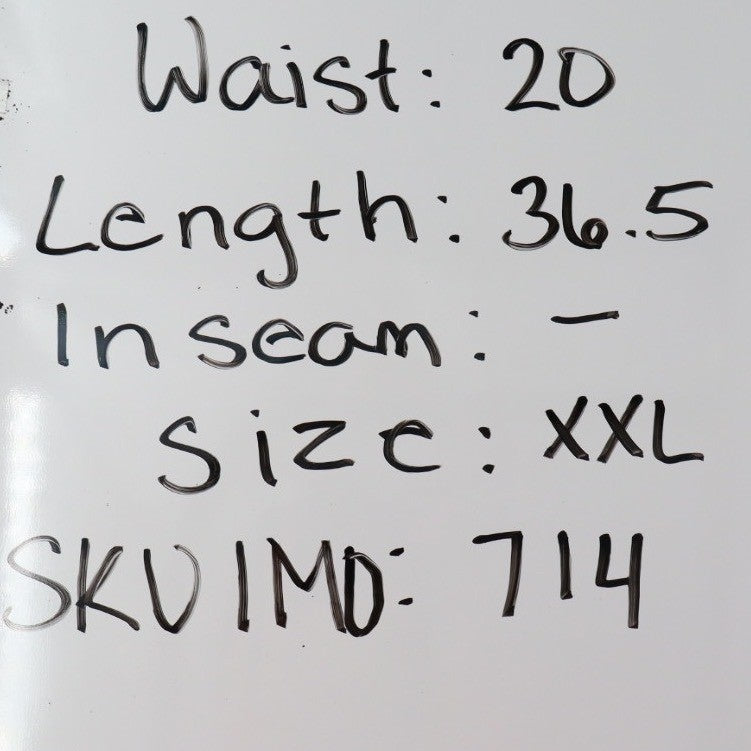 Waist: 20
Length: 36.5
Inseam: -
Size: XXL
SKU IMD: 714